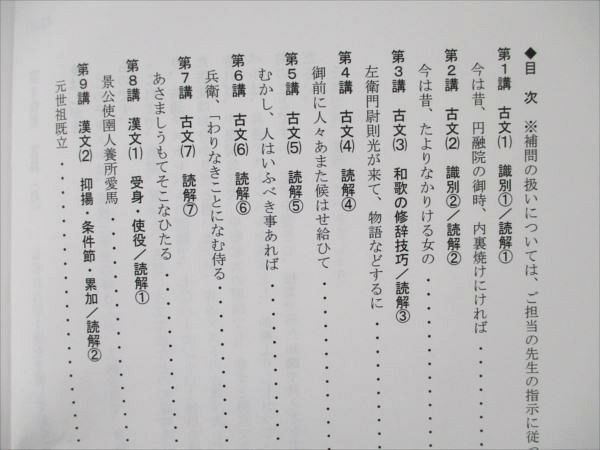 ◆目　次　※補問の扱いについては、ご担当の先生の指示に従っ
第1講　古文(1)　識別①／読解①
今は昔、円融院の御時、内裏焼けにければ・・・・・・
第2講　古文(2)　識別②／読解②
今は昔、たよりなかりける女の・・・・・・・・・
第3講　古文(3)　和歌の修辞技巧／読解③
左衛門尉則光が来て、物語などするに・・・・・・・
第4講　古文(4)　読解④
御前に人々あまた候はせ給ひて・・・・・・・・・
第5講　古文(5)　読解⑤
むかし、人はいふべき事あれば・・・・・・・・・
第6講　古文(6)　読解⑥
兵衛、「わりなきことになむ侍る・・・・・・・・・
第7講　古文(7)　読解⑦
あさましうもてそこなひたる・・・・・・・・・・
第8講　漢文(1)　受身・使役／読解①
景公使圉人養所愛馬・・・・・・・・・・・・
第9講　漢文(2)　抑揚・条件節・累加／読解②
元世祖既立・・・・・・・・・・・・・・・